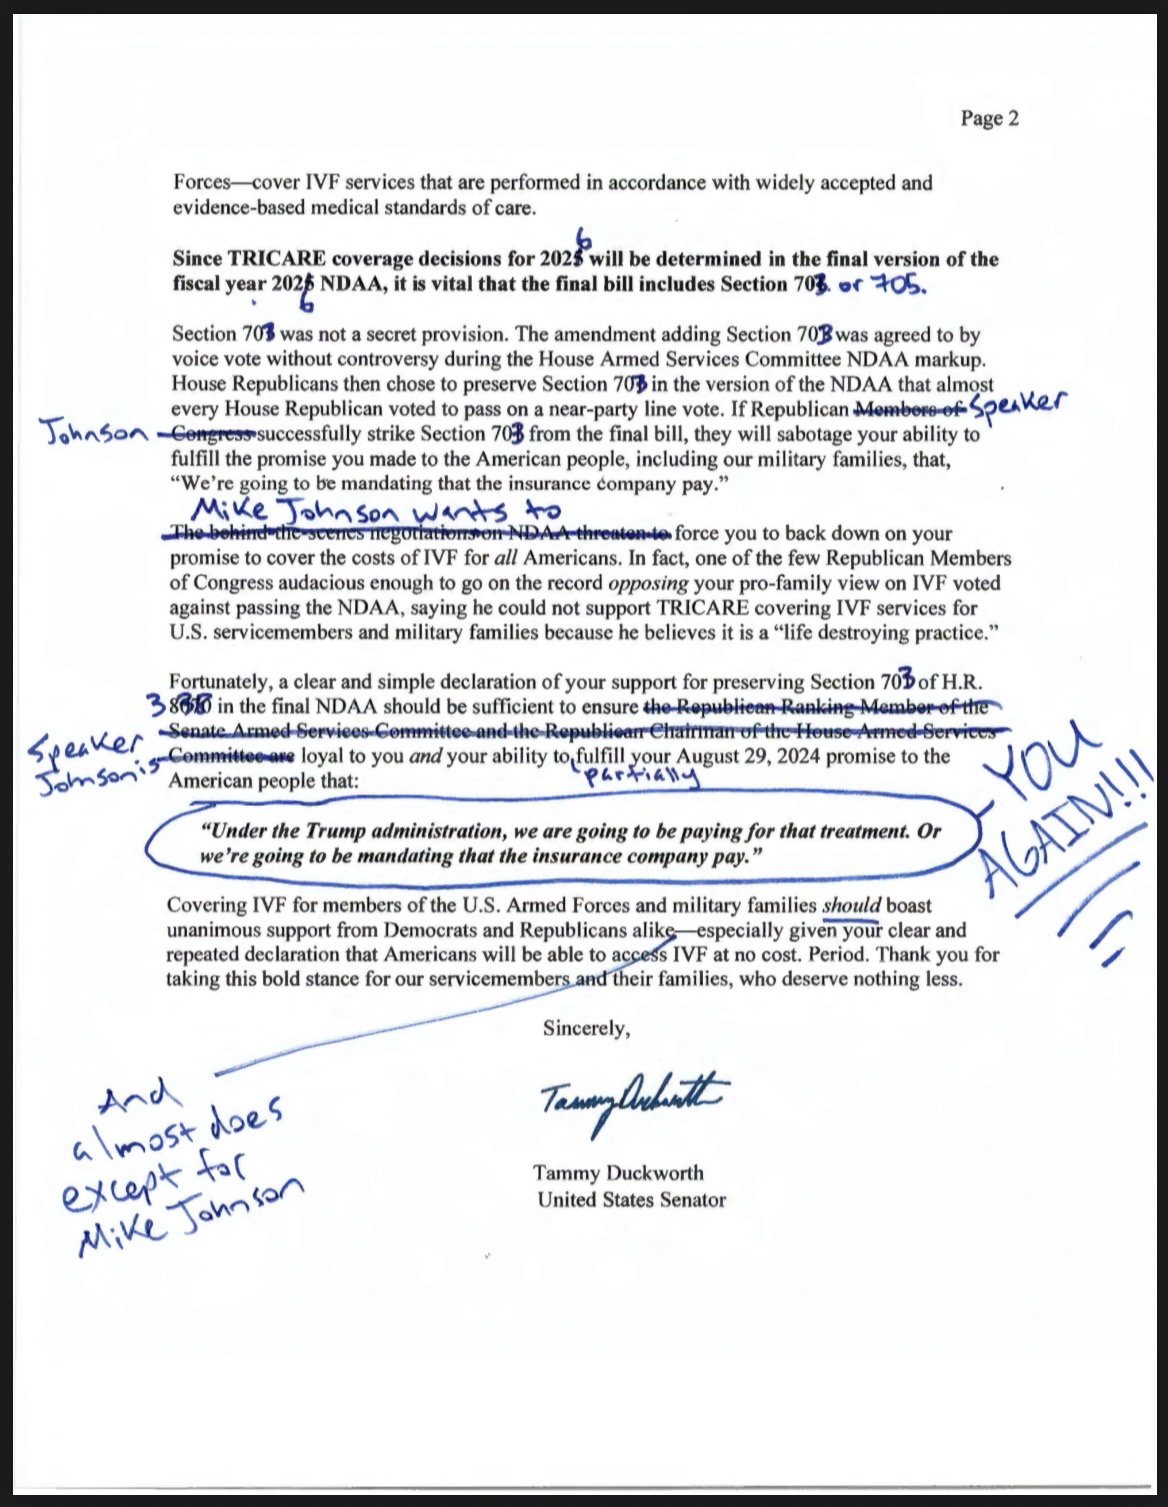 Page 2
Forces—cover IVF services that are performed in accordance with widely accepted and
evidence-based medical standards of care.
6
Since TRICARE coverage decisions for 2025 will be determined in the final version of the
fiscal year 2025 NDAA, it is vital that the final bill includes Section 703. or 705.
6
Section 703 was not a secret provision. The amendment adding Section 703 was agreed to by
voice vote without controversy during the House Armed Services Committee NDAA markup.
House Republicans then chose to preserve Section 703 in the version of the NDAA that almost
every House Republican voted to pass on a near-party line vote. If Republican Members of Speaker
Johnson Congress successfully strike Section 703 from the final bill, they will sabotage your ability to
fulfill the promise you made to the American people, including our military families, that,
“We’re going to be mandating that the insurance company pay.”
Mike Johnson wants to
The behind-the-scenes negotiations on NDAA threaten to force you to back down on your
promise to cover the costs of IVF for all Americans. In fact, one of the few Republican Members
of Congress audacious enough to go on the record opposing your pro-family view on IVF voted
against passing the NDAA, saying he could not support TRICARE covering IVF services for
U.S. servicemembers and military families because he believes it is a “life destroying practice.”
Fortunately, a clear and simple declaration of your support for preserving Section 703 of H.R.
3838 in the final NDAA should be sufficient to ensure the Republican Ranking Member of the
Senate Armed Services Committee and the Republican Chairman of the House Armed Services
Speaker
Johnson is Committee are loyal to you and your ability to fulfill your August 29, 2024 promise to the
partially
American people that:
“Under the Trump administration, we are going to be paying for that treatment. Or
we’re going to be mandating that the insurance company pay.”
YOU
AGAIN!!!
Covering IVF for members of the U.S. Armed Forces and military families should boast
unanimous support from Democrats and Republicans alike—especially given your clear and
repeated declaration that Americans will be able to access IVF at no cost. Period. Thank you for
taking this bold stance for our servicemembers and their families, who deserve nothing less.
Sincerely,
And
almost does
except for
Mike Johnson
Tammy Duckworth
Tammy Duckworth
United States Senator